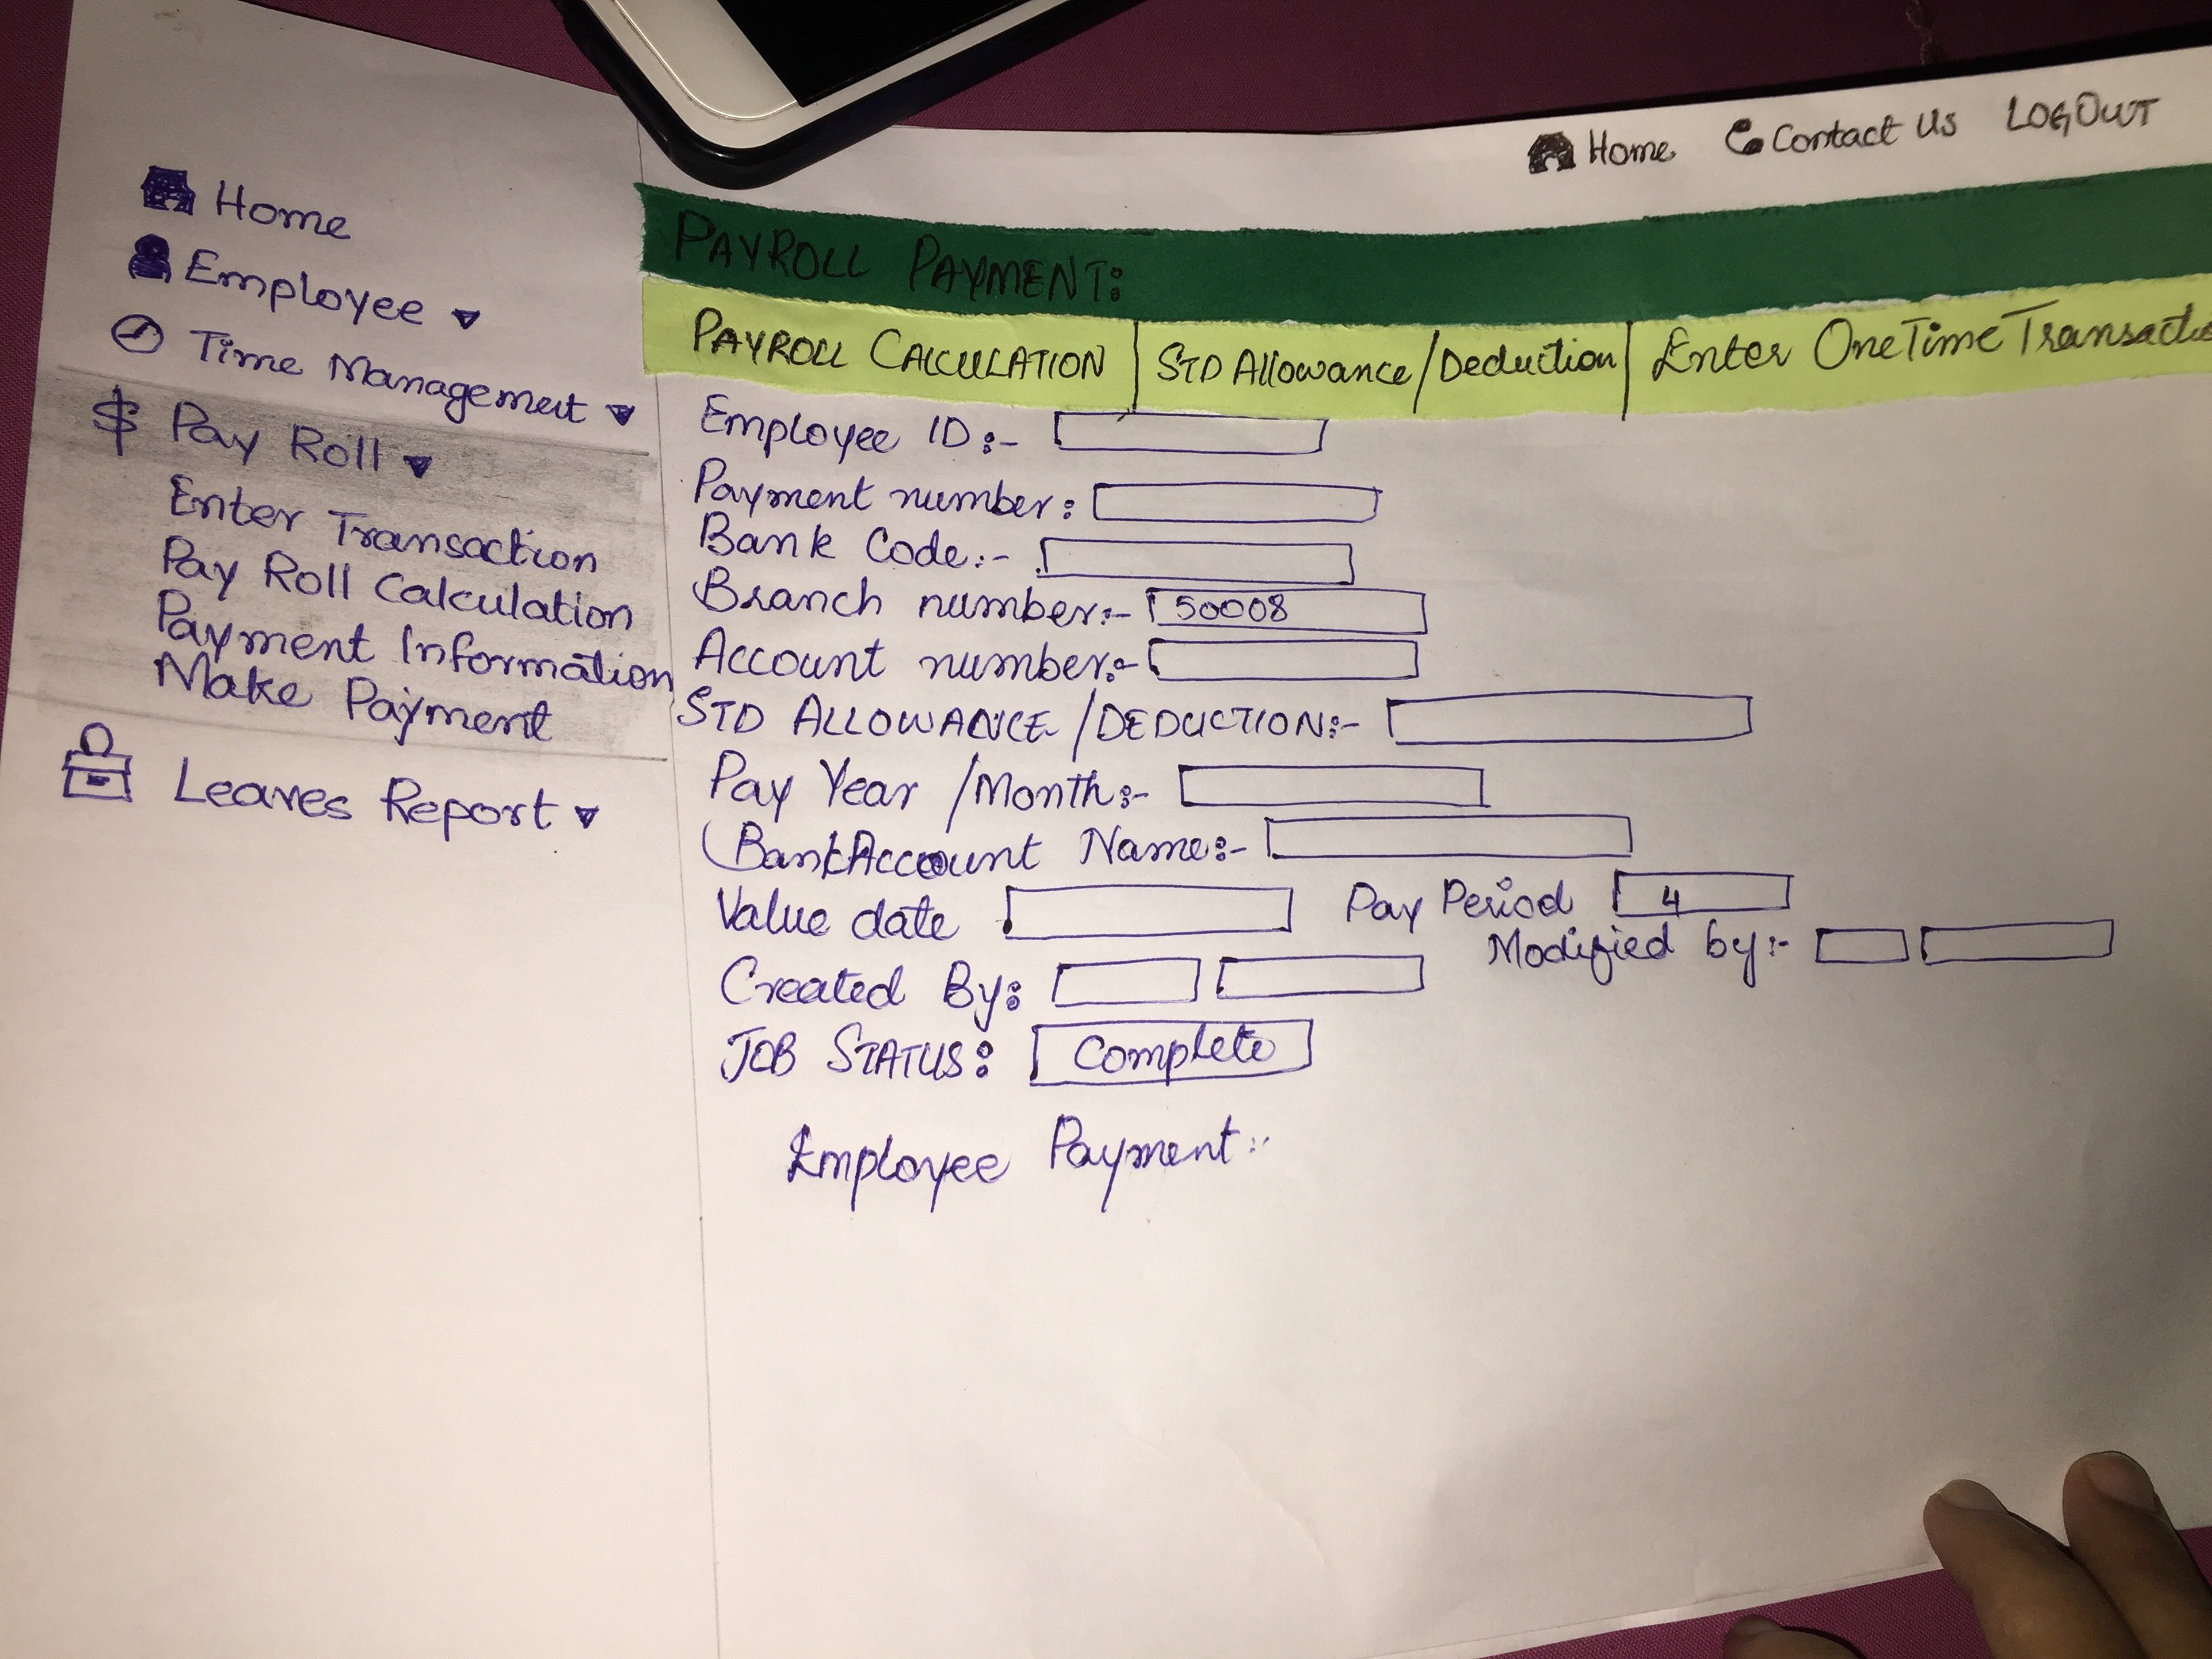 Home Contact us LOGOUT
Home
Employee
Time Management
$ Pay Roll
Enter Transaction
Pay Roll Calculation
Payment Information
Make Payment
Leaves Report
PAYROLL PAYMENT:
PAYROLL CALCULATION | STD Allowance/Deduction | Enter One Time Transactio
Employee ID:-
Payment number:
Bank Code:-
Branch number:- 50008
Account number:-
STD ALLOWANCE/DEDUCTION:-
Pay Year /Month:-
(BankAccount Name:-
Value date Pay Period 4
Created By: Modified by:-
JOB STATUS: Complete
Employee Payment: